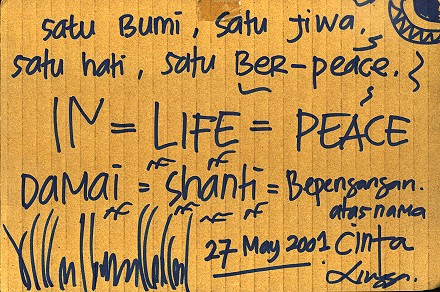 satu Bumi, satu jiwa,
satu hati, satu BER-peace.
IN = LIFE = PEACE
DAMAi = shanti = Bepengangan.
atas nama
27 May 2001. Cinta